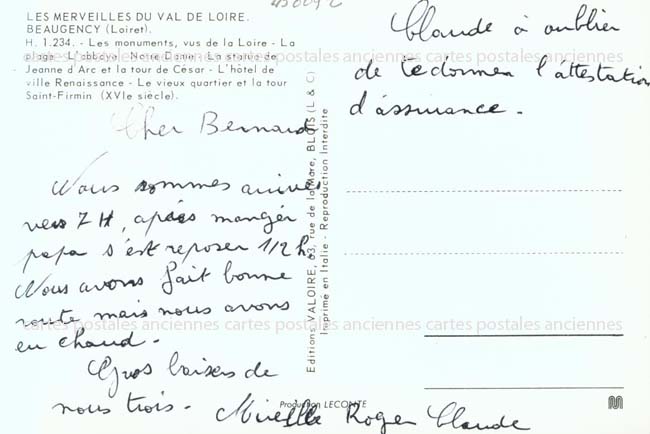 LES MERVEILLES DU VAL DE LOIRE.
BEAUGENCY (Loiret).
H. 1.234. - Les monuments, vus de la Loire - La
plage - L'abbaye - Notre-Dame - La statue de
Jeanne d'Arc et la tour de César - L'hôtel de
ville Renaissance - Le vieux quartier et la tour
Saint-Firmin (XVIe siècle).
cartes postales anciennes cartes postales anciennes cartes postales anciennes
Cher Bernard
Nous sommes arrivés
vers 7 H, après manger
papa s'est reposer 1/2 h.
Nous avons fait bonne
route mais nous avons
eu chaud.
Gros baisers de
nous trois.
Mireille Roger Claude
Claude à oublier
de te donner l'attestation
d'assurance.
Editions VALOIRE, 63, rue de la Mare, BLOIS (L & C)
Imprimé en Italie - Reproduction Interdite
cartes postales anciennes cartes postales anciennes cartes postales anciennes
Production LECONTE